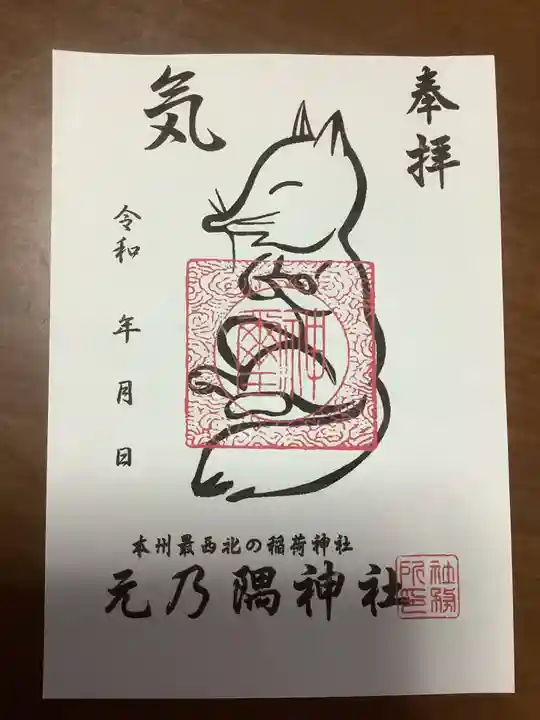 奉拝
気
令和 年 月 日
神璽
本州最西北の稲荷神社
元乃隅神社
社務所印